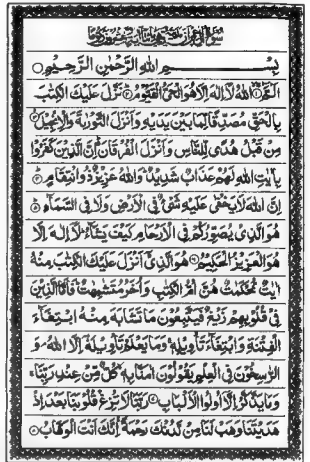 بِسْمِ اللهِ الرَّحْمٰنِ الرَّحِيْمِ
الٓمّٓ اللهُ لَآ اِلٰهَ اِلَّا هُوَ الْحَىُّ الْقَيُّوْمُ نَزَّلَ عَلَيْكَ الْكِتٰبَ
بِالْحَقِّ مُصَدِّقًا لِّمَا بَيْنَ يَدَيْهِ وَاَنْزَلَ التَّوْرٰىةَ وَالْاِنْجِيْلَ
مِنْ قَبْلُ هُدًى لِّلنَّاسِ وَاَنْزَلَ الْفُرْقَانَ اِنَّ الَّذِيْنَ كَفَرُوْا
بِاٰيٰتِ اللهِ لَهُمْ عَذَابٌ شَدِيْدٌ وَاللهُ عَزِيْزٌ ذُو انْتِقَامٍ
اِنَّ اللهَ لَا يَخْفٰى عَلَيْهِ شَىْءٌ فِى الْاَرْضِ وَلَا فِى السَّمَآءِ
هُوَ الَّذِىْ يُصَوِّرُكُمْ فِى الْاَرْحَامِ كَيْفَ يَشَآءُ لَآ اِلٰهَ اِلَّا
هُوَ الْعَزِيْزُ الْحَكِيْمُ هُوَ الَّذِىْٓ اَنْزَلَ عَلَيْكَ الْكِتٰبَ مِنْهُ
اٰيٰتٌ مُّحْكَمٰتٌ هُنَّ اُمُّ الْكِتٰبِ وَاُخَرُ مُتَشٰبِهٰتٌ فَاَمَّا الَّذِيْنَ
فِىْ قُلُوْبِهِمْ زَيْغٌ فَيَتَّبِعُوْنَ مَا تَشَابَهَ مِنْهُ ابْتِغَآءَ
الْفِتْنَةِ وَابْتِغَآءَ تَاْوِيْلِهٖ وَمَا يَعْلَمُ تَاْوِيْلَهٗٓ اِلَّا اللهُ وَ
الرّٰسِخُوْنَ فِى الْعِلْمِ يَقُوْلُوْنَ اٰمَنَّا بِهٖ كُلٌّ مِّنْ عِنْدِ رَبِّنَا
وَمَا يَذَّكَّرُ اِلَّآ اُولُوا الْاَلْبَابِ رَبَّنَا لَا تُزِغْ قُلُوْبَنَا بَعْدَ اِذْ
هَدَيْتَنَا وَهَبْ لَنَا مِنْ لَّدُنْكَ رَحْمَةً اِنَّكَ اَنْتَ الْوَهَّابُ